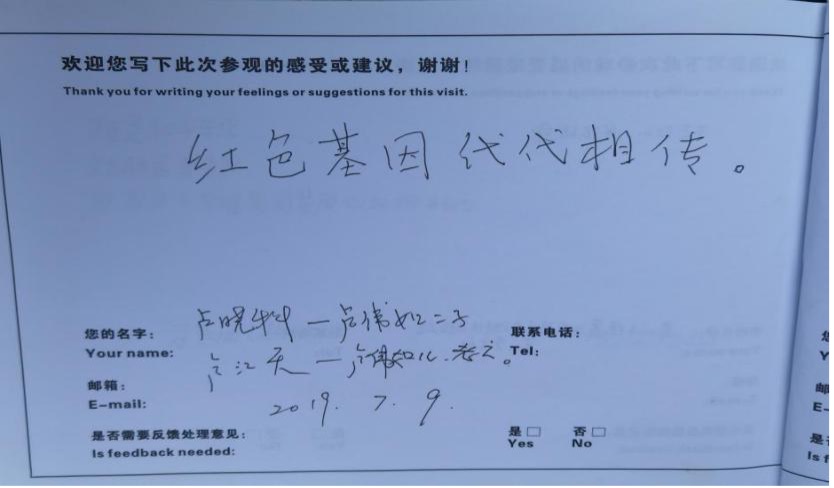 欢迎您写下此次参观的感受或建议，谢谢！
Thank you for writing your feelings or suggestions for this visit.
红色基因代代相传。
您的名字：
Your name:
联系电话：
Tel:
邮箱：
E-mail:
2019. 7. 9.
是否需要反馈处理意见：
Is feedback needed:
是□ 否□
Yes No